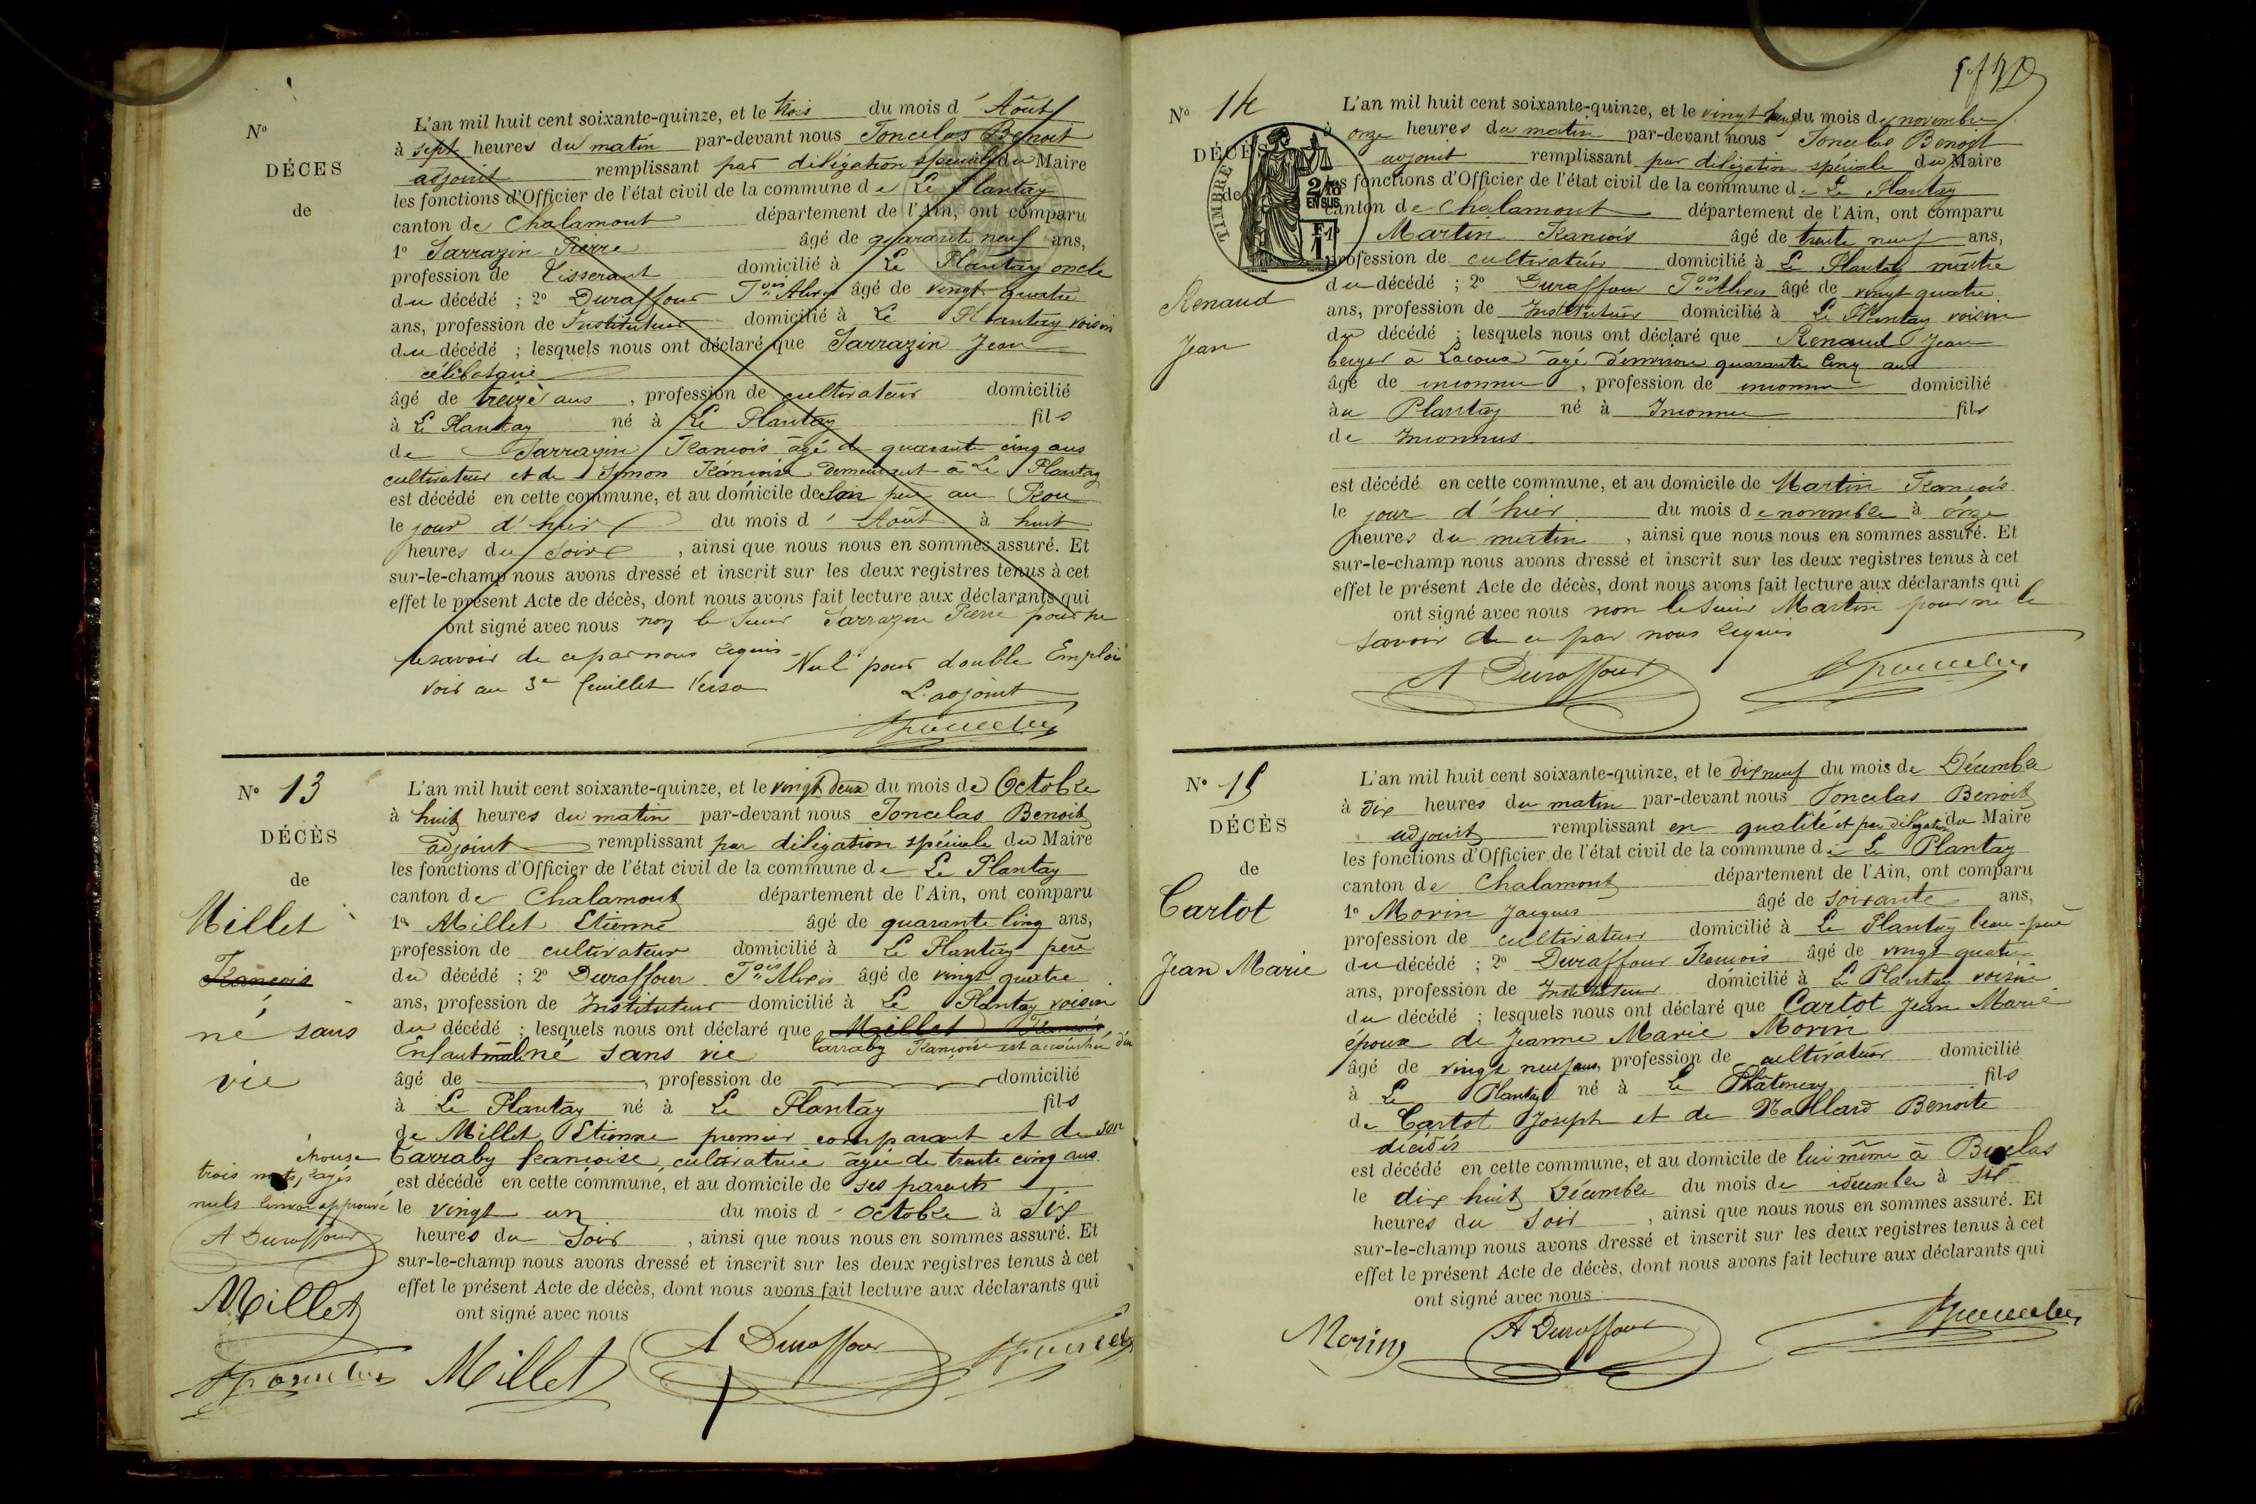 N°
DÉCES
de
L'an mil huit cent soixante-quinze, et le trois du mois d' Août
à sept heures du matin par-devant nous Joncelas Benoit
adjoint remplissant par déligation spéciale du Maire
les fonctions d'Officier de l'état civil de la commune de Le Plantay
canton de Chalamont département de l'Ain, ont comparu
1° Sarrazin Pierre âgé de quarante neuf ans,
profession de Tisserant domicilié à Le Plantay oncle
du décédé ; 2° Duraffour Fois Alexis âgé de vingt quatre
ans, profession de Instituteur domicilié à Le Plantay voisin
du décédé ; lesquels nous ont déclaré que Sarrazin Jean
célibataire
âgé de treize ans , profession de cultivateur domicilié
à Le Plantay né à Le Plantay fils
de Sarrazin Francois âgé de quarante cinq ans
cultivateur et de Simon Francoise demeurant à Le Plantay
est décédé en cette commune, et au domicile de son père au Roux
le jour d'hier du mois d' Août à huit
heures du soir , ainsi que nous nous en sommes assuré. Et
sur-le-champ nous avons dressé et inscrit sur les deux registres tenus à cet
effet le présent Acte de décès, dont nous avons fait lecture aux déclarants qui
ont signé avec nous non le Sieur Sarrazin Pierre pour ne
le savoir de ce par nous requis - Nul pour double Emploi
voir au 3e feuillet Verso L'adjoint
N° 13
DÉCÈS
de
Millet
Francois
né sans
vie
L'an mil huit cent soixante-quinze, et le vingt deux du mois de Octobre
à huit heures du matin par-devant nous Joncelas Benoit
adjoint remplissant par déligation spéciale du Maire
les fonctions d'Officier de l'état civil de la commune de Le Plantay
canton de Chalamont département de l'Ain, ont comparu
1° Millet Etienne âgé de quarante cinq ans,
profession de cultivateur domicilié à Le Plantay père
du décédé ; 2° Duraffour Fois Alexis âgé de vingt quatre
ans, profession de Instituteur domicilié à Le Plantay voisin
du décédé ; lesquels nous ont déclaré que Millet Francois
Carraby Francoise est accouchée d'un
Enfant mâle né sans vie
âgé de , profession de domicilié
à Le Plantay né à Le Plantay fils
de Millet Etienne premier comparant et de son
épouse Carraby francoise, cultivatrice âgée de trente cinq ans
est décédé en cette commune, et au domicile de ses parents
le vingt un du mois d' octobre à Six
heures du Soir , ainsi que nous nous en sommes assuré. Et
sur-le-champ nous avons dressé et inscrit sur les deux registres tenus à cet
effet le présent Acte de décès, dont nous avons fait lecture aux déclarants qui
ont signé avec nous
trois mots rayés
nuls renvoi approuvé
A Duraffour
Millet
Millet A Duraffour
N° 14
DÉCÈS
de
Renaud
Jean
TIMBRE
2/10
EN SUS
L'an mil huit cent soixante-quinze, et le vingt deux du mois de novembre
à onze heures du matin par-devant nous Joncelas Benoit
adjoint remplissant par déligation spéciale du Maire
les fonctions d'Officier de l'état civil de la commune de Le Plantay
canton de Chalamont département de l'Ain, ont comparu
Martin Francois âgé de trente neuf ans,
profession de cultivateur domicilié à Le Plantay maître
du décédé ; 2° Duraffour Fois Alexis âgé de vingt quatre
ans, profession de Instituteur domicilié à Le Plantay voisin
du décédé ; lesquels nous ont déclaré que Renaud Jean
berger à Lacoua âgé d'environ quarante cinq ans
âgé de inconnu , profession de inconnu domicilié
au Plantay né à Inconnu fils
de Inconnus
est décédé en cette commune, et au domicile de Martin Francois
le jour d'hier du mois de novembre à onze
heures du matin , ainsi que nous nous en sommes assuré. Et
sur-le-champ nous avons dressé et inscrit sur les deux registres tenus à cet
effet le présent Acte de décès, dont nous avons fait lecture aux déclarants qui
ont signé avec nous non le Sieur Martin pour ne le
savoir de ce par nous requis
A Duraffour
N° 15
DÉCÈS
de
Cartot
Jean Marie
L'an mil huit cent soixante-quinze, et le dix neuf du mois de Décembre
à dix heures du matin par-devant nous Joncelas Benoit
adjoint remplissant en qualité et par déligation du Maire
les fonctions d'Officier de l'état civil de la commune de Le Plantay
canton de Chalamont département de l'Ain, ont comparu
1° Morin Jacques âgé de soixante ans,
profession de cultivateur domicilié à Le Plantay beau-père
du décédé ; 2° Duraffour Francois âgé de vingt quatre
ans, profession de Instituteur domicilié à Le Plantay voisin
du décédé ; lesquels nous ont déclaré que Cartot Jean Marie
époux de Jeanne Marie Morin
âgé de vingt neuf ans, profession de cultivateur domicilié
à Le Plantay né à Le Chatenay fils
de Cartot Joseph et de Maillard Benoite
décédés
est décédé en cette commune, et au domicile de lui même à
le dix huit Décembre du mois de décembre à six
heures du Soir , ainsi que nous nous en sommes assuré. Et
sur-le-champ nous avons dressé et inscrit sur les deux registres tenus à cet
effet le présent Acte de décès, dont nous avons fait lecture aux déclarants qui
ont signé avec nous
Morin A Duraffour